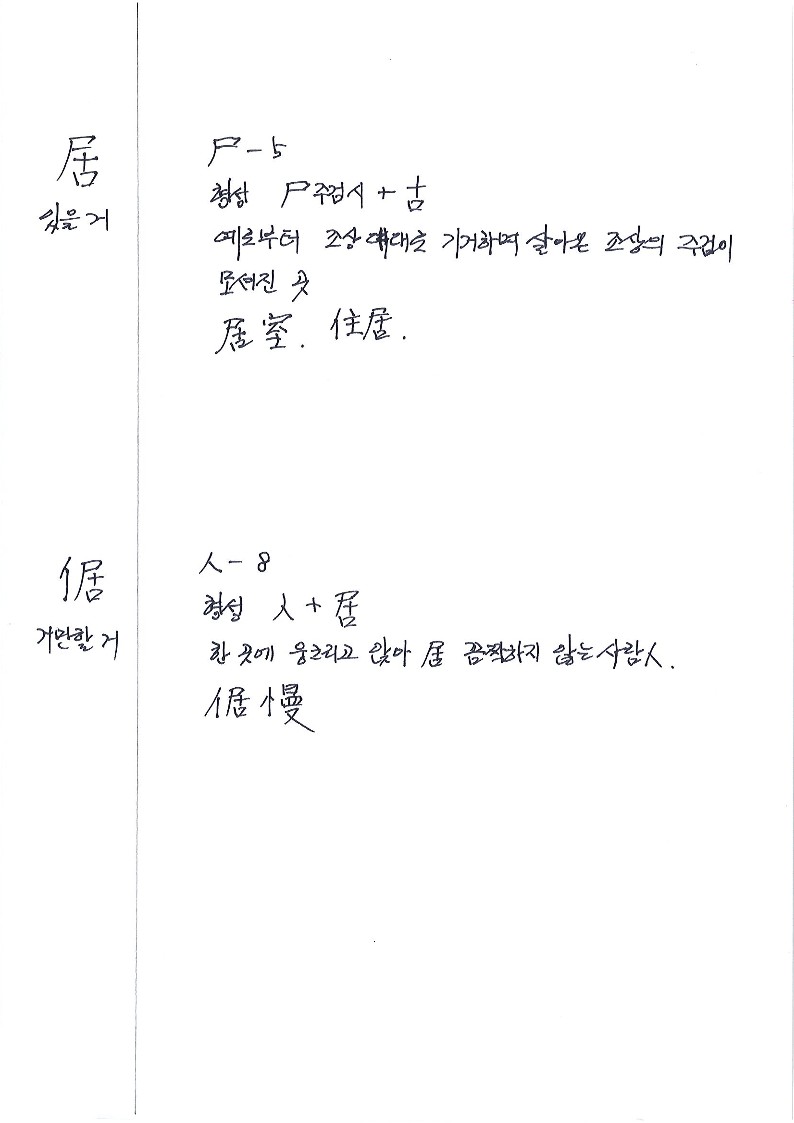 居
있을 거
尸 - 5
형성 尸 주검시 + 古
예로부터 조상 대대로 기거하며 살아온 조상의 주검이
모셔진 곳
居室. 住居.
倨
거만할 거
人 - 8
형성 人 + 居
한 곳에 웅크리고 앉아 居 꿈쩍하지 않는 사람人.
倨慢